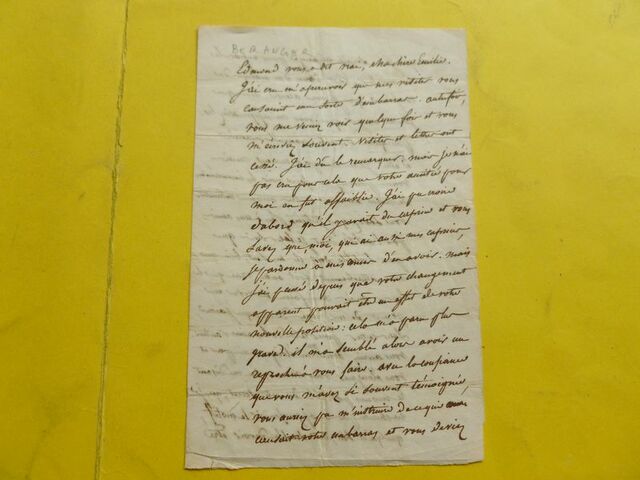 BERANGER
Edmond vous a dit vrai, ma chère Emilie.
J'ai cru m'apercevoir que mes visites vous
causaient une sorte d'embarras. autrefois,
vous me veniez voir quelque fois et vous
m'écriviez souvent. Visites et lettres ont
cessé. J'ai dû le remarquer. mais je n'ai
pas cru pour cela que votre amitié pour
moi en fut affaiblie. J'ai pu croire
d'abord qu'il y avait du caprice et vous
savez que, moi, qui ai aussi mes
je pardonne à mes amis d'en avoir. mais
j'ai pensé depuis que votre changement
apparent pouvait être un effet de votre
nouvelle position: cela m'a paru plus
grave. il m'a semblé alors avoir un
reproche à vous faire. avec la confiance
que vous m'avez si souvent témoignée,
vous auriez pu m'instruire de ce qui
causait votre embarras et vous deviez